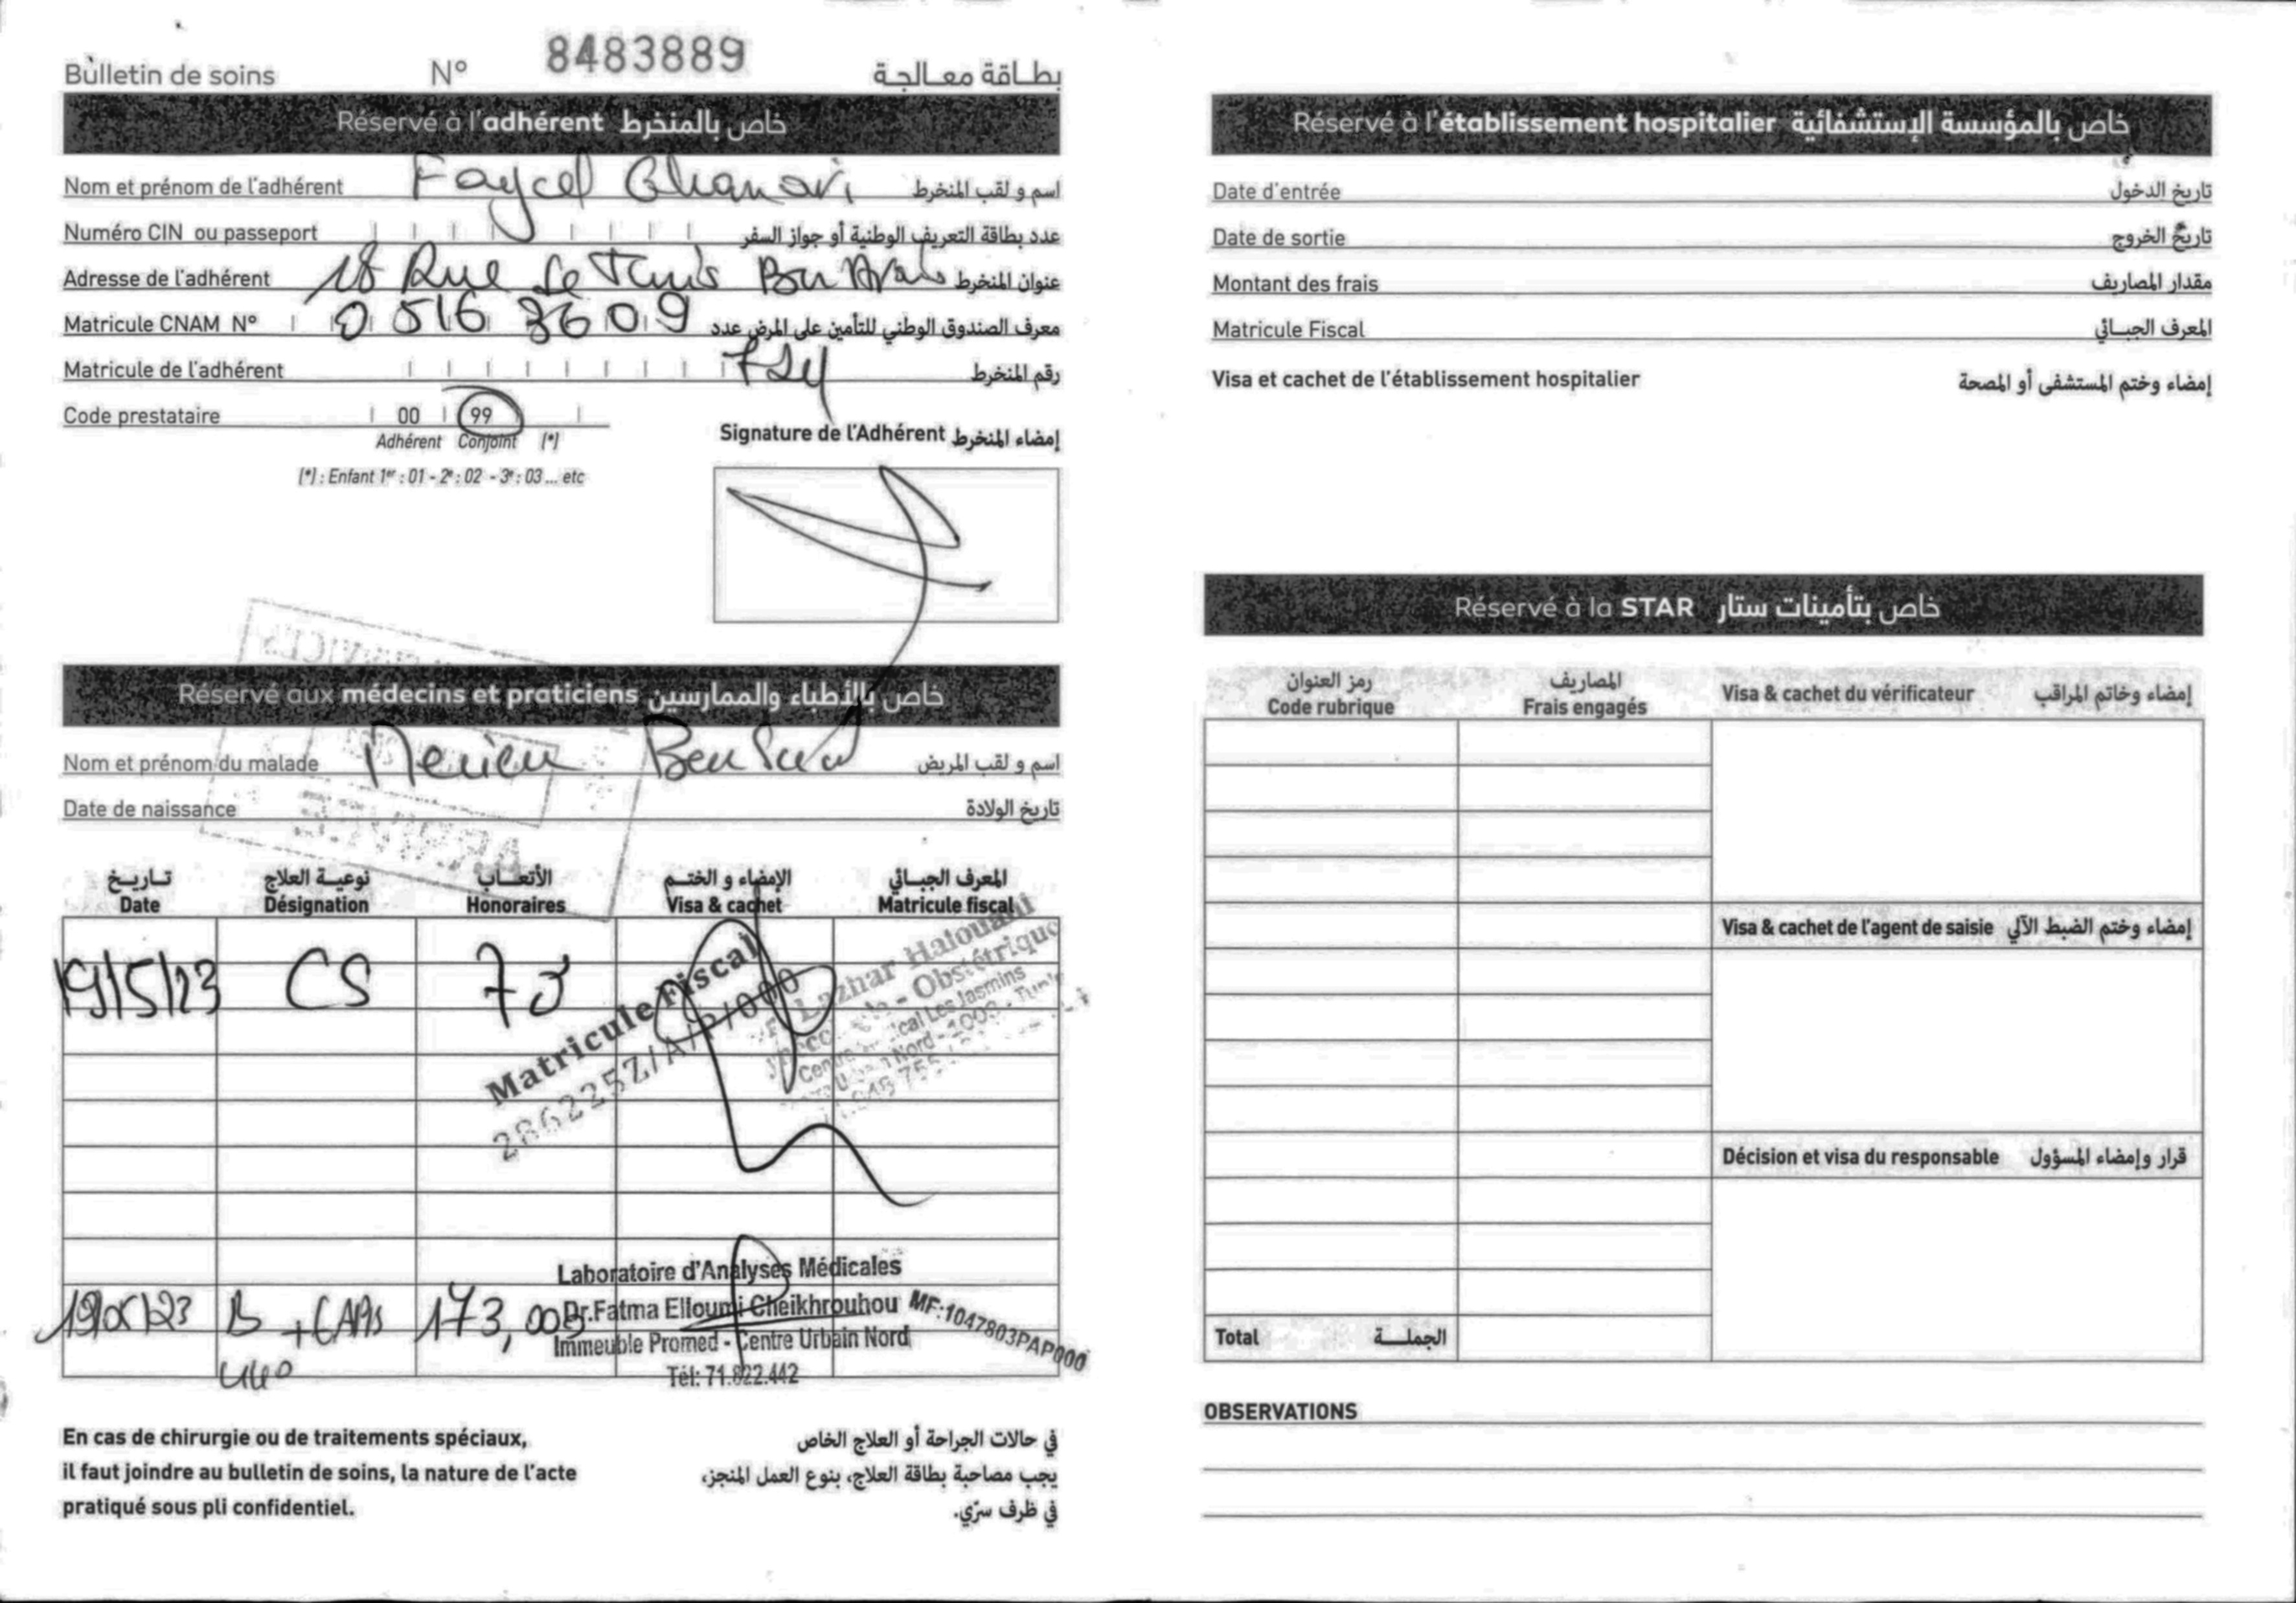 Bulletin de soins N° 8483889 بطاقة معالجة
Réservé à l'adhérent خاص بالمنخرط
Nom et prénom de l'adhérent Fayçel Ghanari اسم و لقب المنخرط
Numéro CIN ou passeport عدد بطاقة التعريف الوطنية أو جواز السفر
Adresse de l'adhérent 18 Rue de Tunis Bou عنوان المنخرط
Matricule CNAM N° 0516 3609 معرف الصندوق الوطني للتأمين على المرض عدد
Matricule de l'adhérent 724 رقم المنخرط
Code prestataire 00 99
Adhérent Conjoint (*)
(*) : Enfant 1er : 01 - 2e : 02 - 3e : 03 ... etc
Signature de l'Adhérent إمضاء المنخرط
Réservé aux médecins et praticiens خاص بالأطباء والممارسين
Nom et prénom du malade Ben اسم و لقب المريض
Date de naissance تاريخ الولادة
تاريخ نوعية العلاج الأتعاب الإمضاء و الختم المعرف الجبائي
Date Désignation Honoraires Visa & cachet Matricule fiscal
19/5/23 CS 70
Matricule Fiscal
286225Z/A/P/000
Lazhar Halouani
- Obstétrique
Les Jasmins
Nord - 1003 - Tunis
Laboratoire d'Analyses Médicales
19/05/23 B + 173,000 Dr.Fatma Elloumi Cheikhrouhou MF:1047803PAP000
440 Immeuble Promed - Centre Urbain Nord
Tél: 71.822.442
En cas de chirurgie ou de traitements spéciaux,
il faut joindre au bulletin de soins, la nature de l'acte
pratiqué sous pli confidentiel.
في حالات الجراحة أو العلاج الخاص
يجب مصاحبة بطاقة العلاج، بنوع العمل المنجز،
في ظرف سرّي.
Réservé à l'établissement hospitalier خاص بالمؤسسة الإستشفائية
Date d'entrée تاريخ الدخول
Date de sortie تاريخ الخروج
Montant des frais مقدار المصاريف
Matricule Fiscal المعرف الجبائي
Visa et cachet de l'établissement hospitalier إمضاء وختم المستشفى أو المصحة
Réservé à la STAR خاص بتأمينات ستار
رمز العنوان المصاريف
Code rubrique Frais engagés Visa & cachet du vérificateur إمضاء وخاتم المراقب
Visa & cachet de l'agent de saisie إمضاء وختم الضبط الآلي
Décision et visa du responsable قرار وإمضاء المسؤول
Total الجملة
OBSERVATIONS